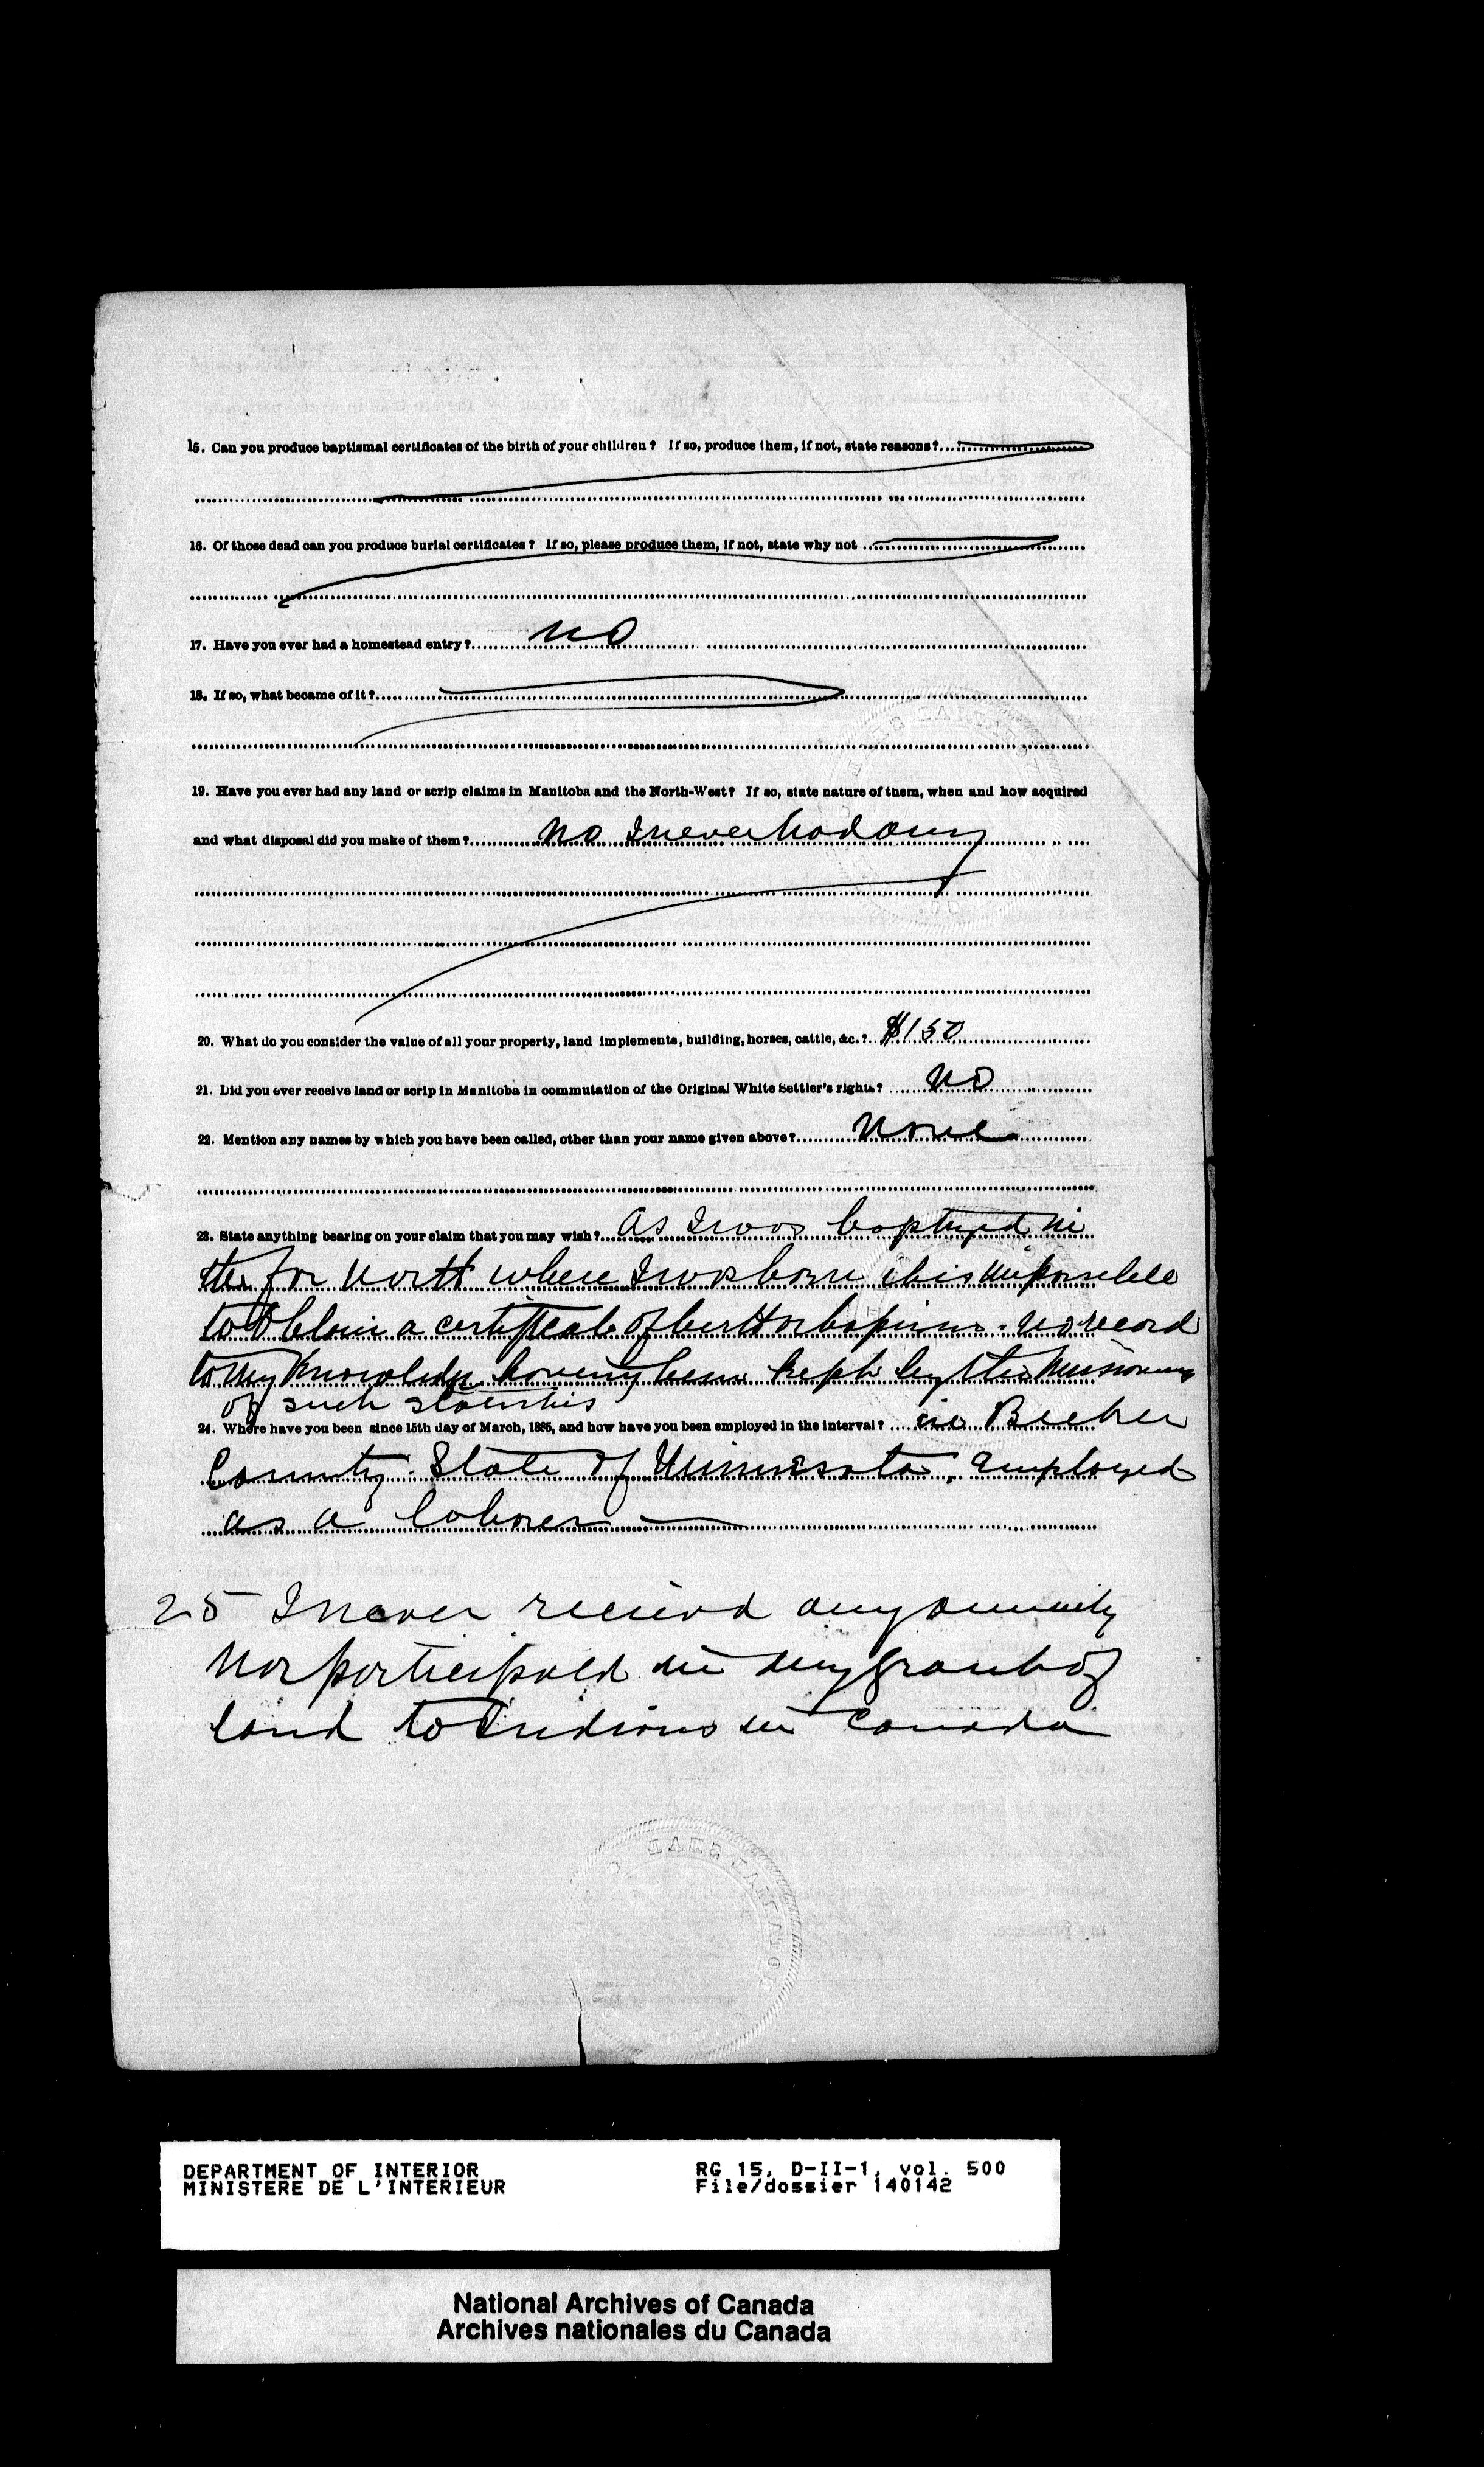 15. Can you produce baptismal certificates of the birth of your children? If so, produce them, if not, state reasons?
16. Of those dead can you produce burial certificates? If so, please produce them, if not, state why not
17. Have you ever had a homestead entry? no
18. If so, what became of it?
19. Have you ever had any land or scrip claims in Manitoba and the North-West? If so, state nature of them, when and how acquired
and what disposal did you make of them? no I never had any
20. What do you consider the value of all your property, land implements, building, horses, cattle, &c.? $150
21. Did you ever receive land or scrip in Manitoba in commutation of the Original White Settler's rights? no
22. Mention any names by which you have been called, other than your name given above? None
23. State anything bearing on your claim that you may wish? As I was baptized in
the far North where I was born it is impossible
to obtain a certificate of birth or baptism. no record
to my knowledge having been kept by the Missionary
of such
24. Where have you been since 15th day of March, 1885, and how have you been employed in the interval? in Becker
County State of Minnesota, employed
as a laborer
25 I never received any annuity
Nor participated in any grant of
land to Indians in Canada
NOTARIAL SEAL
DEPARTMENT OF INTERIOR
MINISTERE DE L'INTERIEUR
RG 15, D-II-1, vol. 500
File/dossier 140142
National Archives of Canada
Archives nationales du Canada